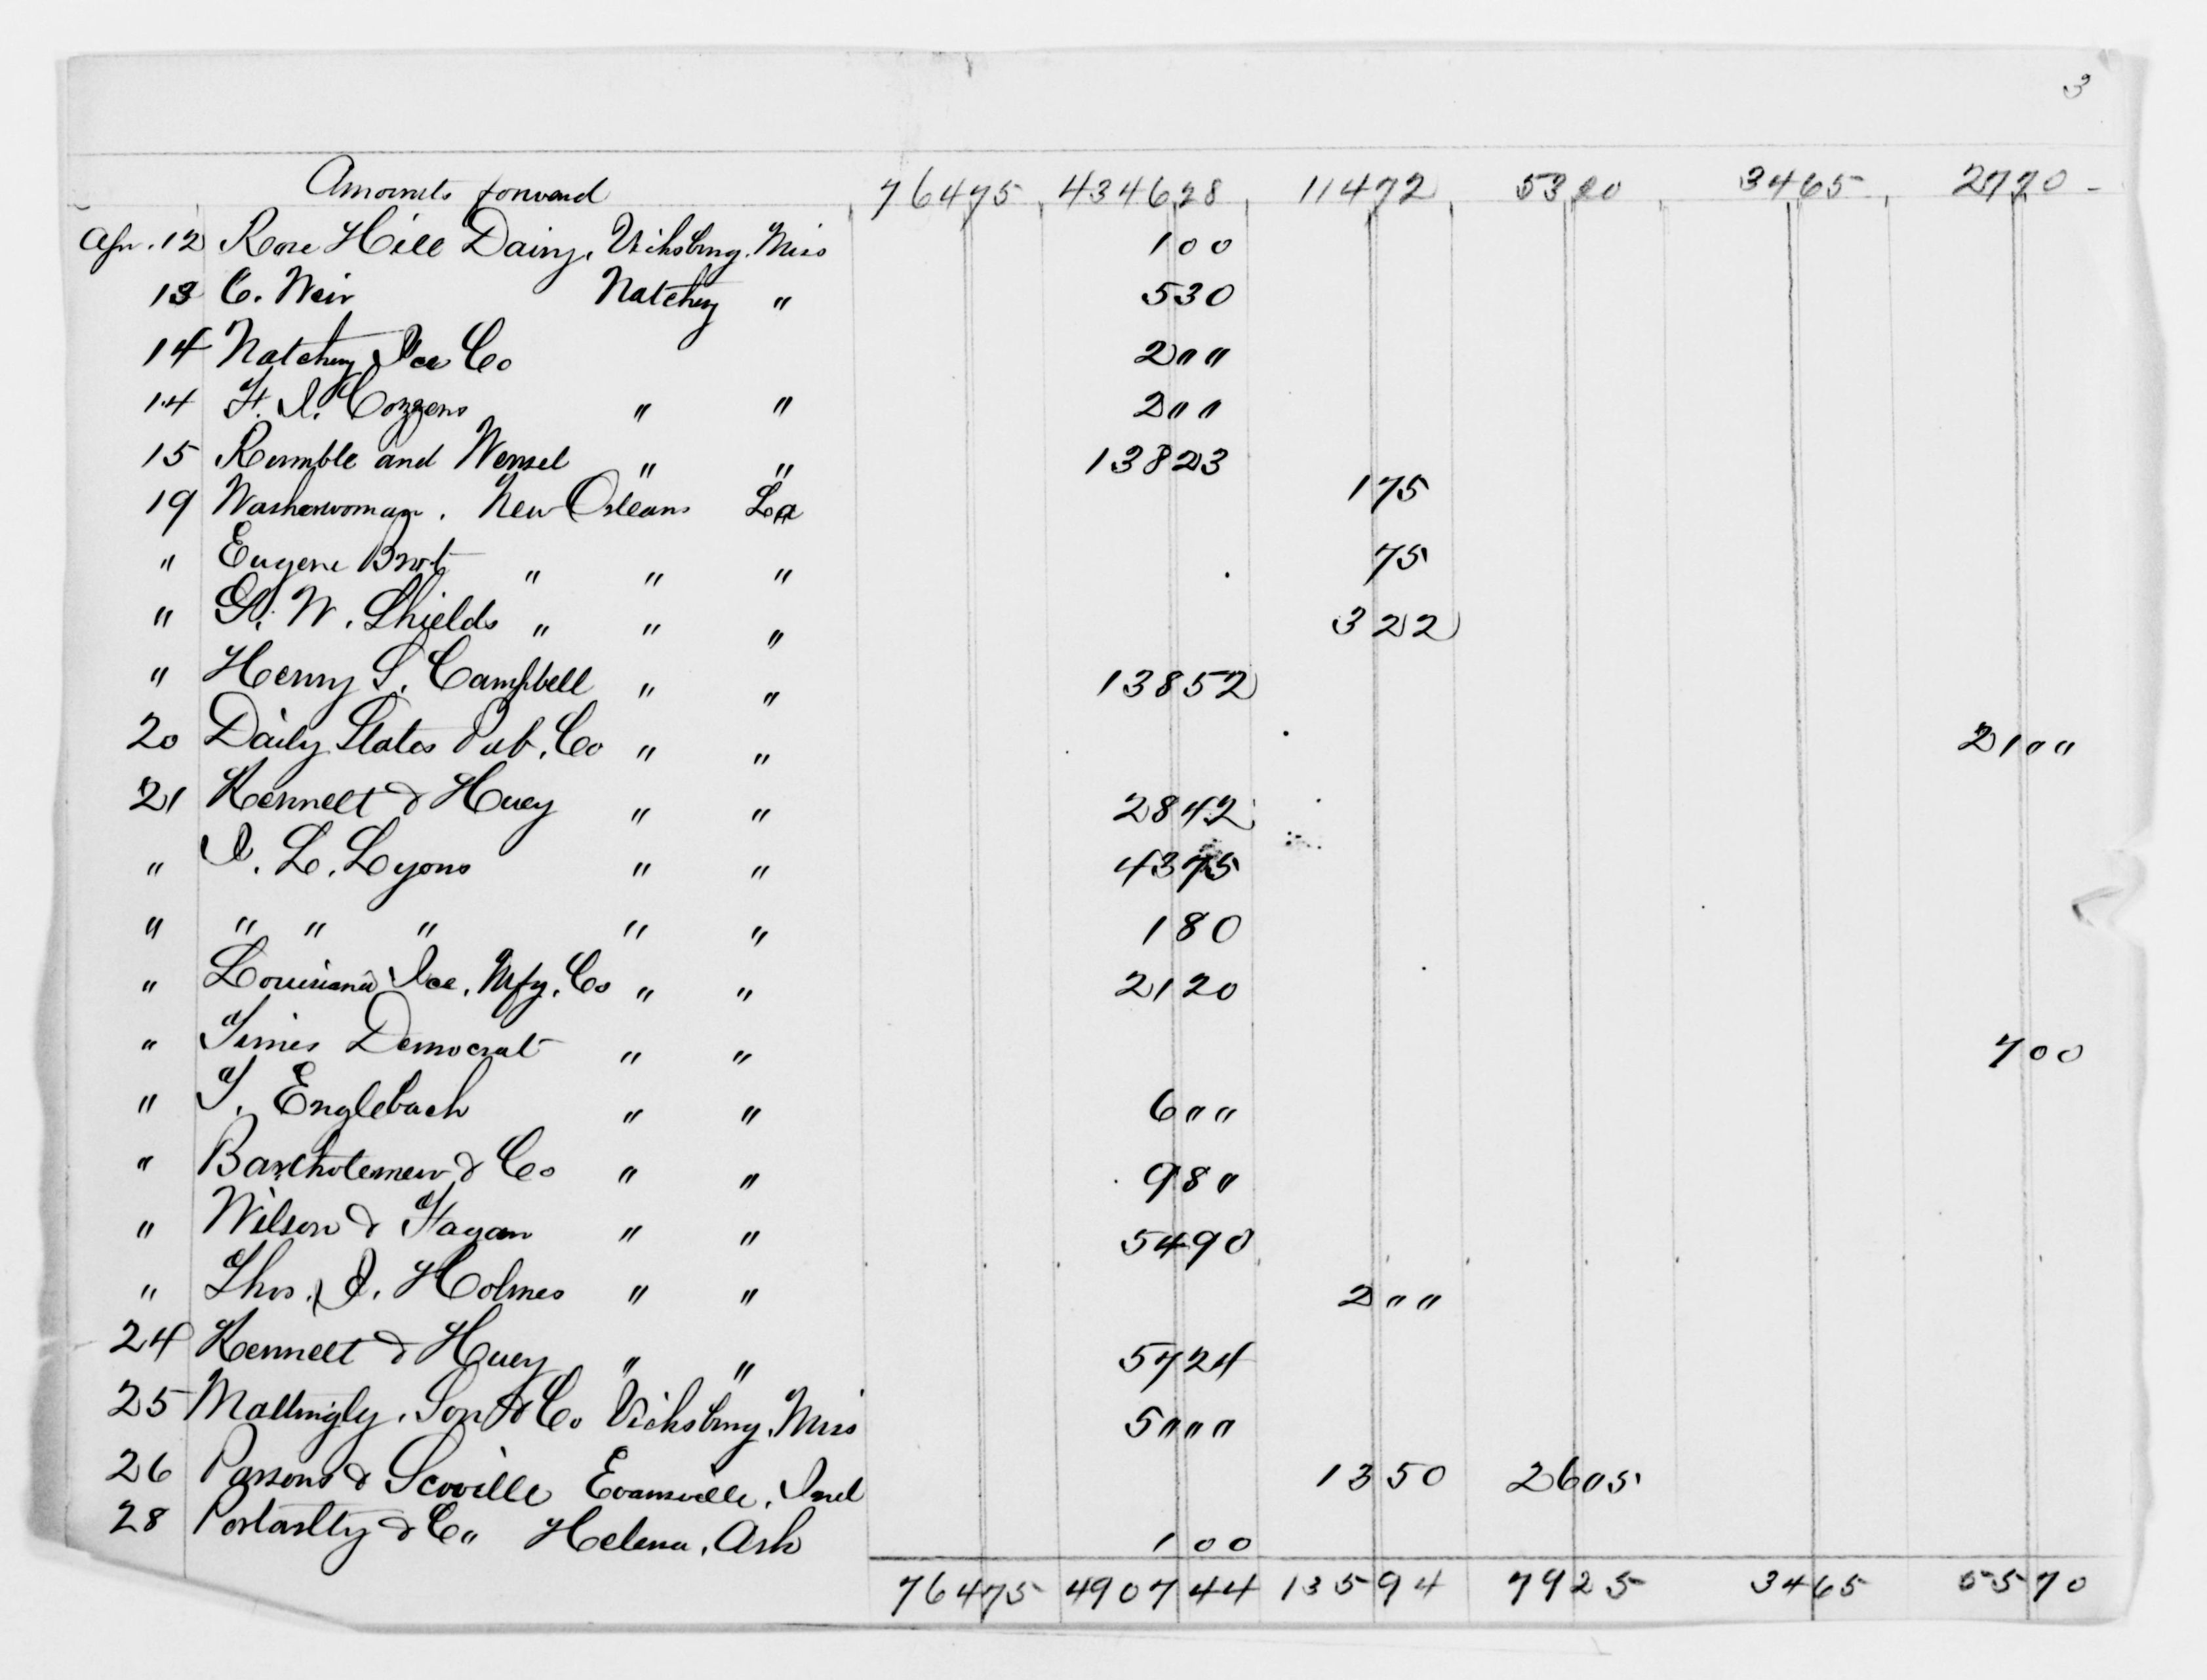 3
Amounts forward 764 75 4346 28 114 72 53 20 34 65 27 70 -
Apr. 12 Rose Hill Dairy. Vicksburg. Miss 1 00
13 C. Weir Natchez " 5 30
14 Natchez Ice Co 2 " "
14 F. I. Cozzens " " 2 " "
15 Rumble and Wensel " " 138 23
19 Washerwoman. New Orleans La 1 75
" Eugene " " " 75
" G. W. Shields " " " 3 22
" Henry S. Campbell " " 138 52
20 Daily States Pub. Co " " 21 " "
21 Kennett & Huey " " 28 42
" I. L. Lyons " " 43 75
" " " " " " 1 80
" Louisiana Ice. Mfg. Co " " 21 20
" Times Democrat " " 7 00
" T. Englebach " " 6 " "
" Bartholemew & Co " " 9 8 "
" Wilson & Fagan " " 54 90
" Thos. I. Holmes " " 2 " "
24 Kennett & Huey " " 57 24
25 Mattingly, Son & Co Vicksburg, Miss 5 " " "
26 Parsons & Scoville Evansville, Ind 13 50 26 " 5
28 & Co Helena, Ark 1 00
764 75 4907 44 135 94 79 25 34 65 55 70